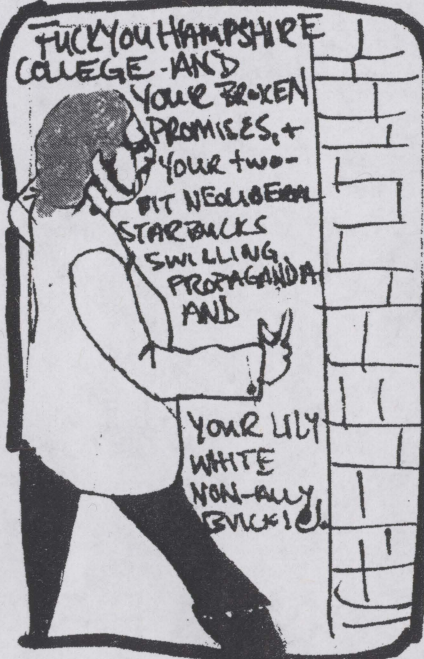 FUCK YOU HAMPSHIRE
COLLEGE - AND
YOUR BROKEN
PROMISES, +
YOUR two-
BIT NEOLIBERAL
STARBUCKS
SWILLING
PROPAGANDA
AND
YOUR LILY
WHITE
NON-ALLY